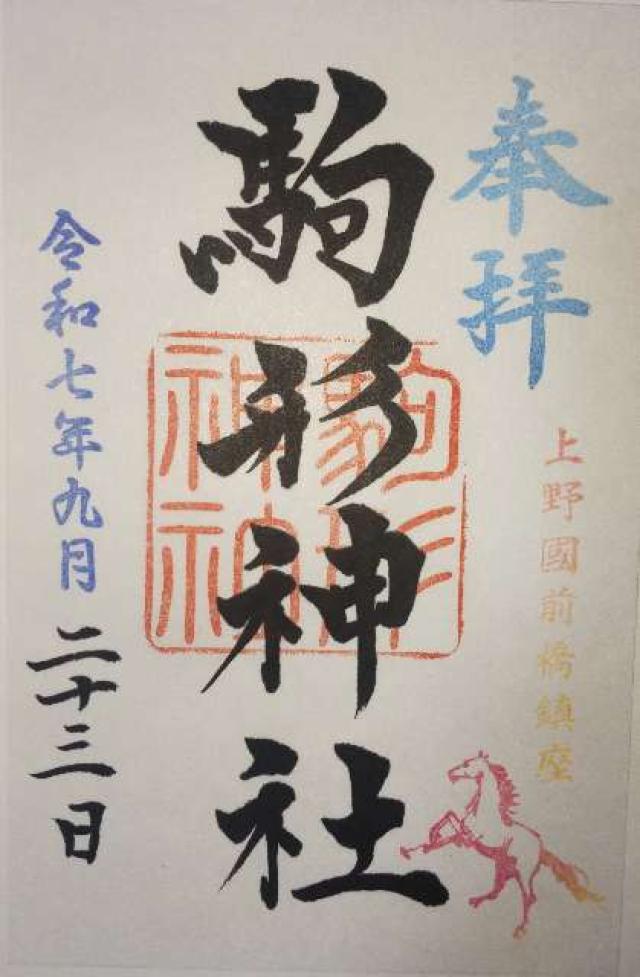 奉拝
上野國前橋鎮座
駒形神社
駒形
神社
令和七年九月二十三日